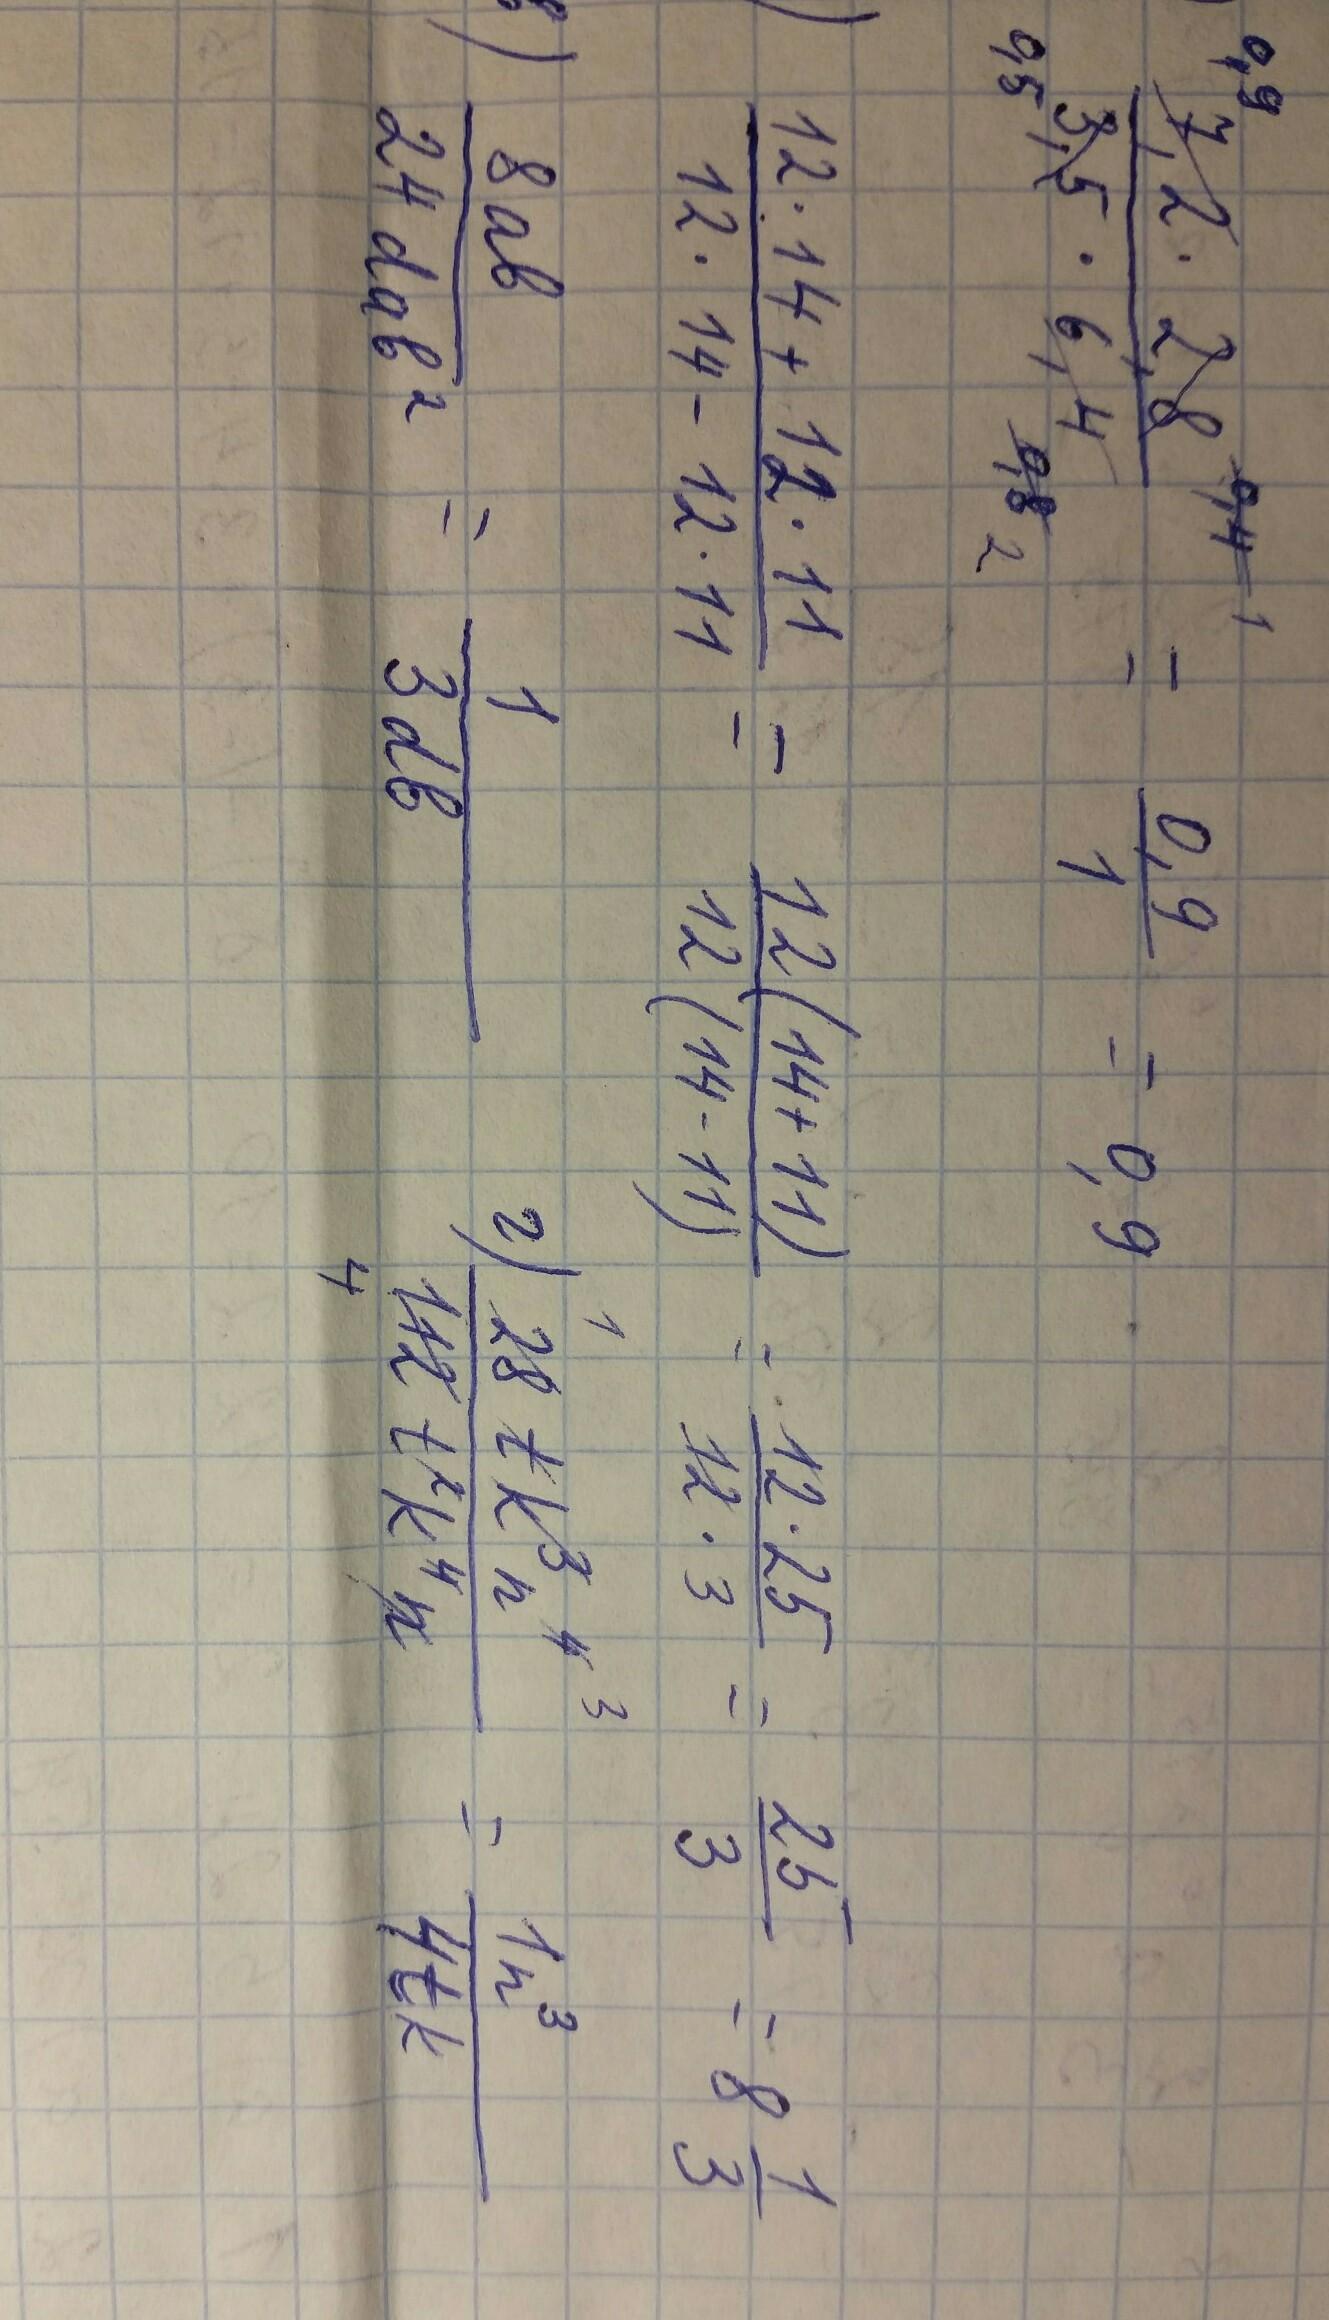 ) 0,9 7,2 · 2,8 0,4 1 / 0,5 3,5 · 6,4 0,8 2 = 0,9/1 = 0,9
) (12·14 + 12·11)/(12·14 - 12·11) = 12(14+11)/12(14-11) = 12·25/12·3 = 25/3 = 8 1/3
в) 8ab/24dab² = 1/3db г) 1 28tk³n⁴ 3 / 4 112t²k⁴n = 1n³/4tk